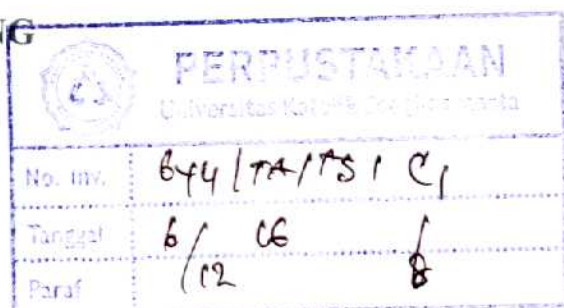 NG
PERPUSTAKAAN
Universitas Katolik Soegijapranata
No. Inv. 644/TA/TS/C1
Tanggal 6/12 06
Paraf